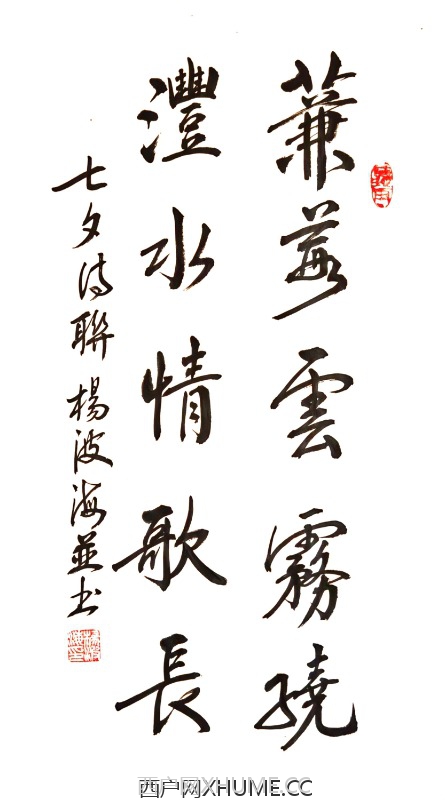 蒹葭雲霧繞
灃水情歌長
七夕詩聯楊波海並书
西户网XHUME.CC